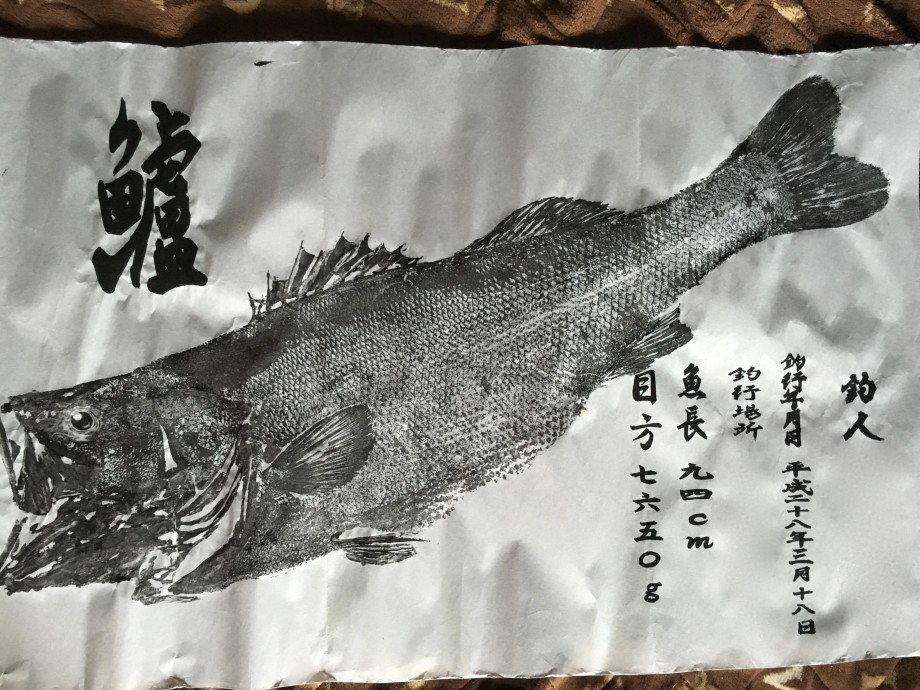 鱸
釣人
釣行年月日 平成二十八年三月十八日
釣行場所
魚長 九四cm
目方 七六五〇g